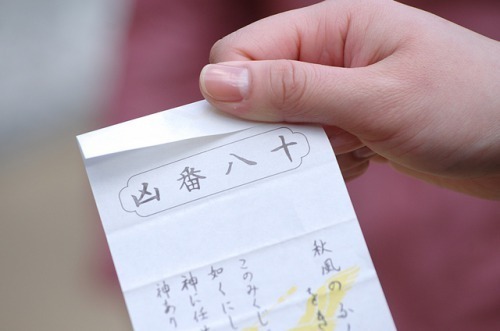 十八番凶
秋風の
このみくじ
如くにし
神に任せ
神あり